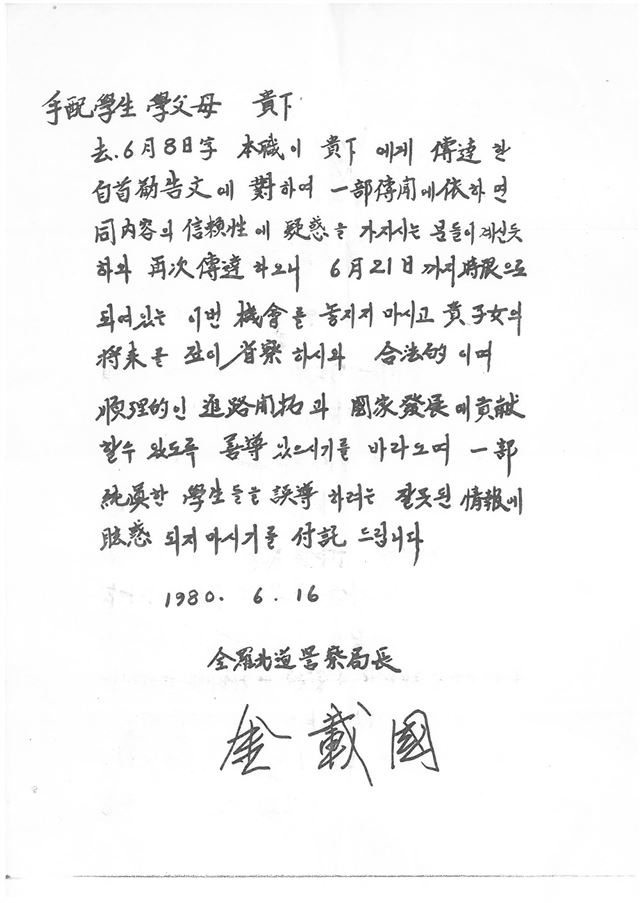 手配學生 學父母 貴下
去.6月8日字 本職이 貴下 에게 傳達 한
自首勸告文에 對하여 一部傳聞에依하면
同內容의 信賴性에 疑惑을 가지시는 분들이계신듯
하와 再次傳達 하오니 6月21日 까지時限으로
되여있는 이번 機會를 놓지지 마시고 貴子女의
將來를 깊이 省察 하시와 合法的 이며
順理的인 進路開拓과 國家發展에貢献
할수 있도록 善導있으시기를 바라오며 一部
純眞한 學生들을 誤導하려는 잘못된 情報에
眩惑 되지마시기를 付託 드립니다
1980. 6. 16
全羅北道警察局長
金載國